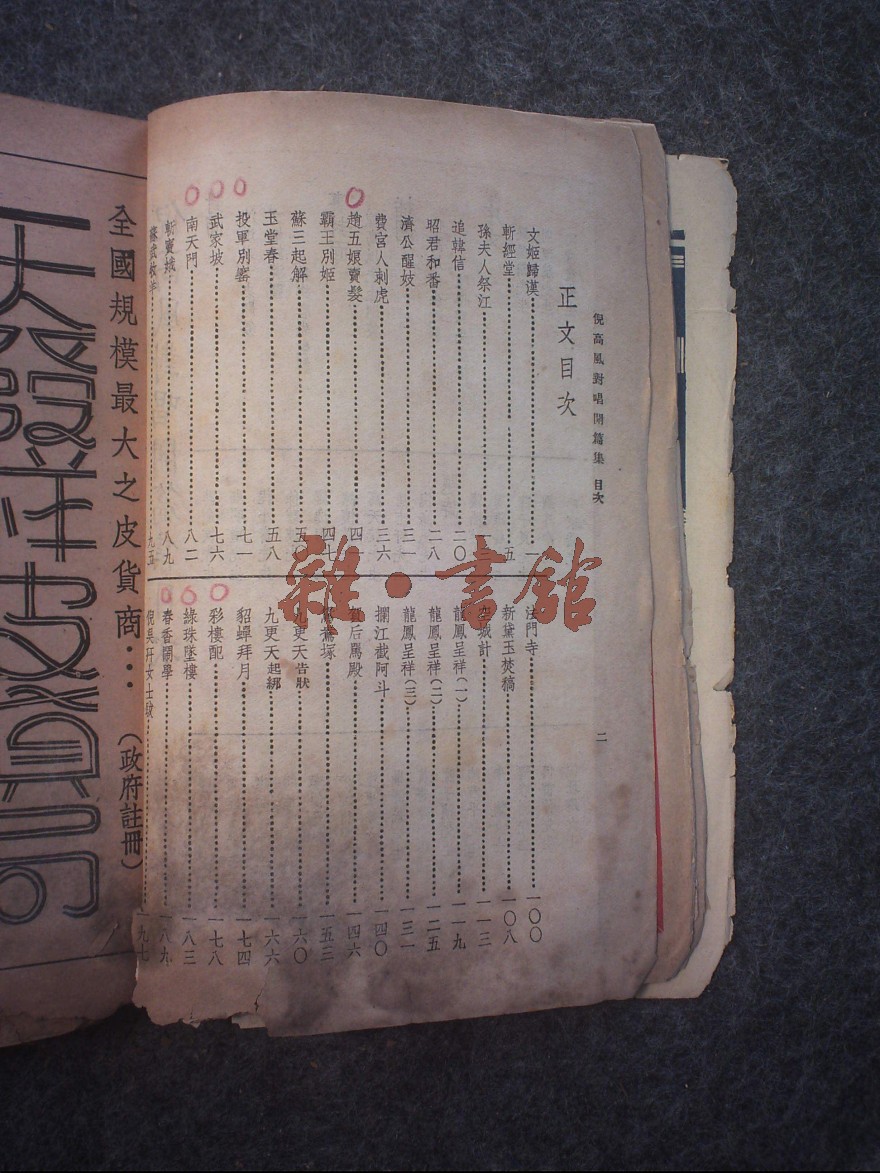 倪高風對唱開篇集 目次
二
正文目次
文姬歸漢 一
斬經堂 五
孫夫人祭江
追韓信 二〇
昭君和番 二八
濟公醒妓 三一
費宮人刺虎 三六
趙五娘賣髮 四一
霸王別姬 四七
蘇三起解 五〇
玉堂春 五八
投軍別窰 七一
武家坡 七六
南天門 八二
斬竇娥 八九
蘇武牧羊 九五
法門寺 一〇〇
新黛玉焚稿 一〇八
空城計 一一三
龍鳳呈祥(一) 一一九
龍鳳呈祥(二) 一二五
龍鳳呈祥(三) 一三一
攔江截阿斗 一四〇
后罵殿 一四六
鴦塚 一五三
九更天告狀 一六〇
九更天起綁 一六六
貂蟬拜月 一七四
彩樓配 一七八
綠珠墜樓 一八三
春香鬧學 一八九
倪吳玕女士跋 一九七
雜·書館
全國規模最大之皮貨商…(政府註冊)